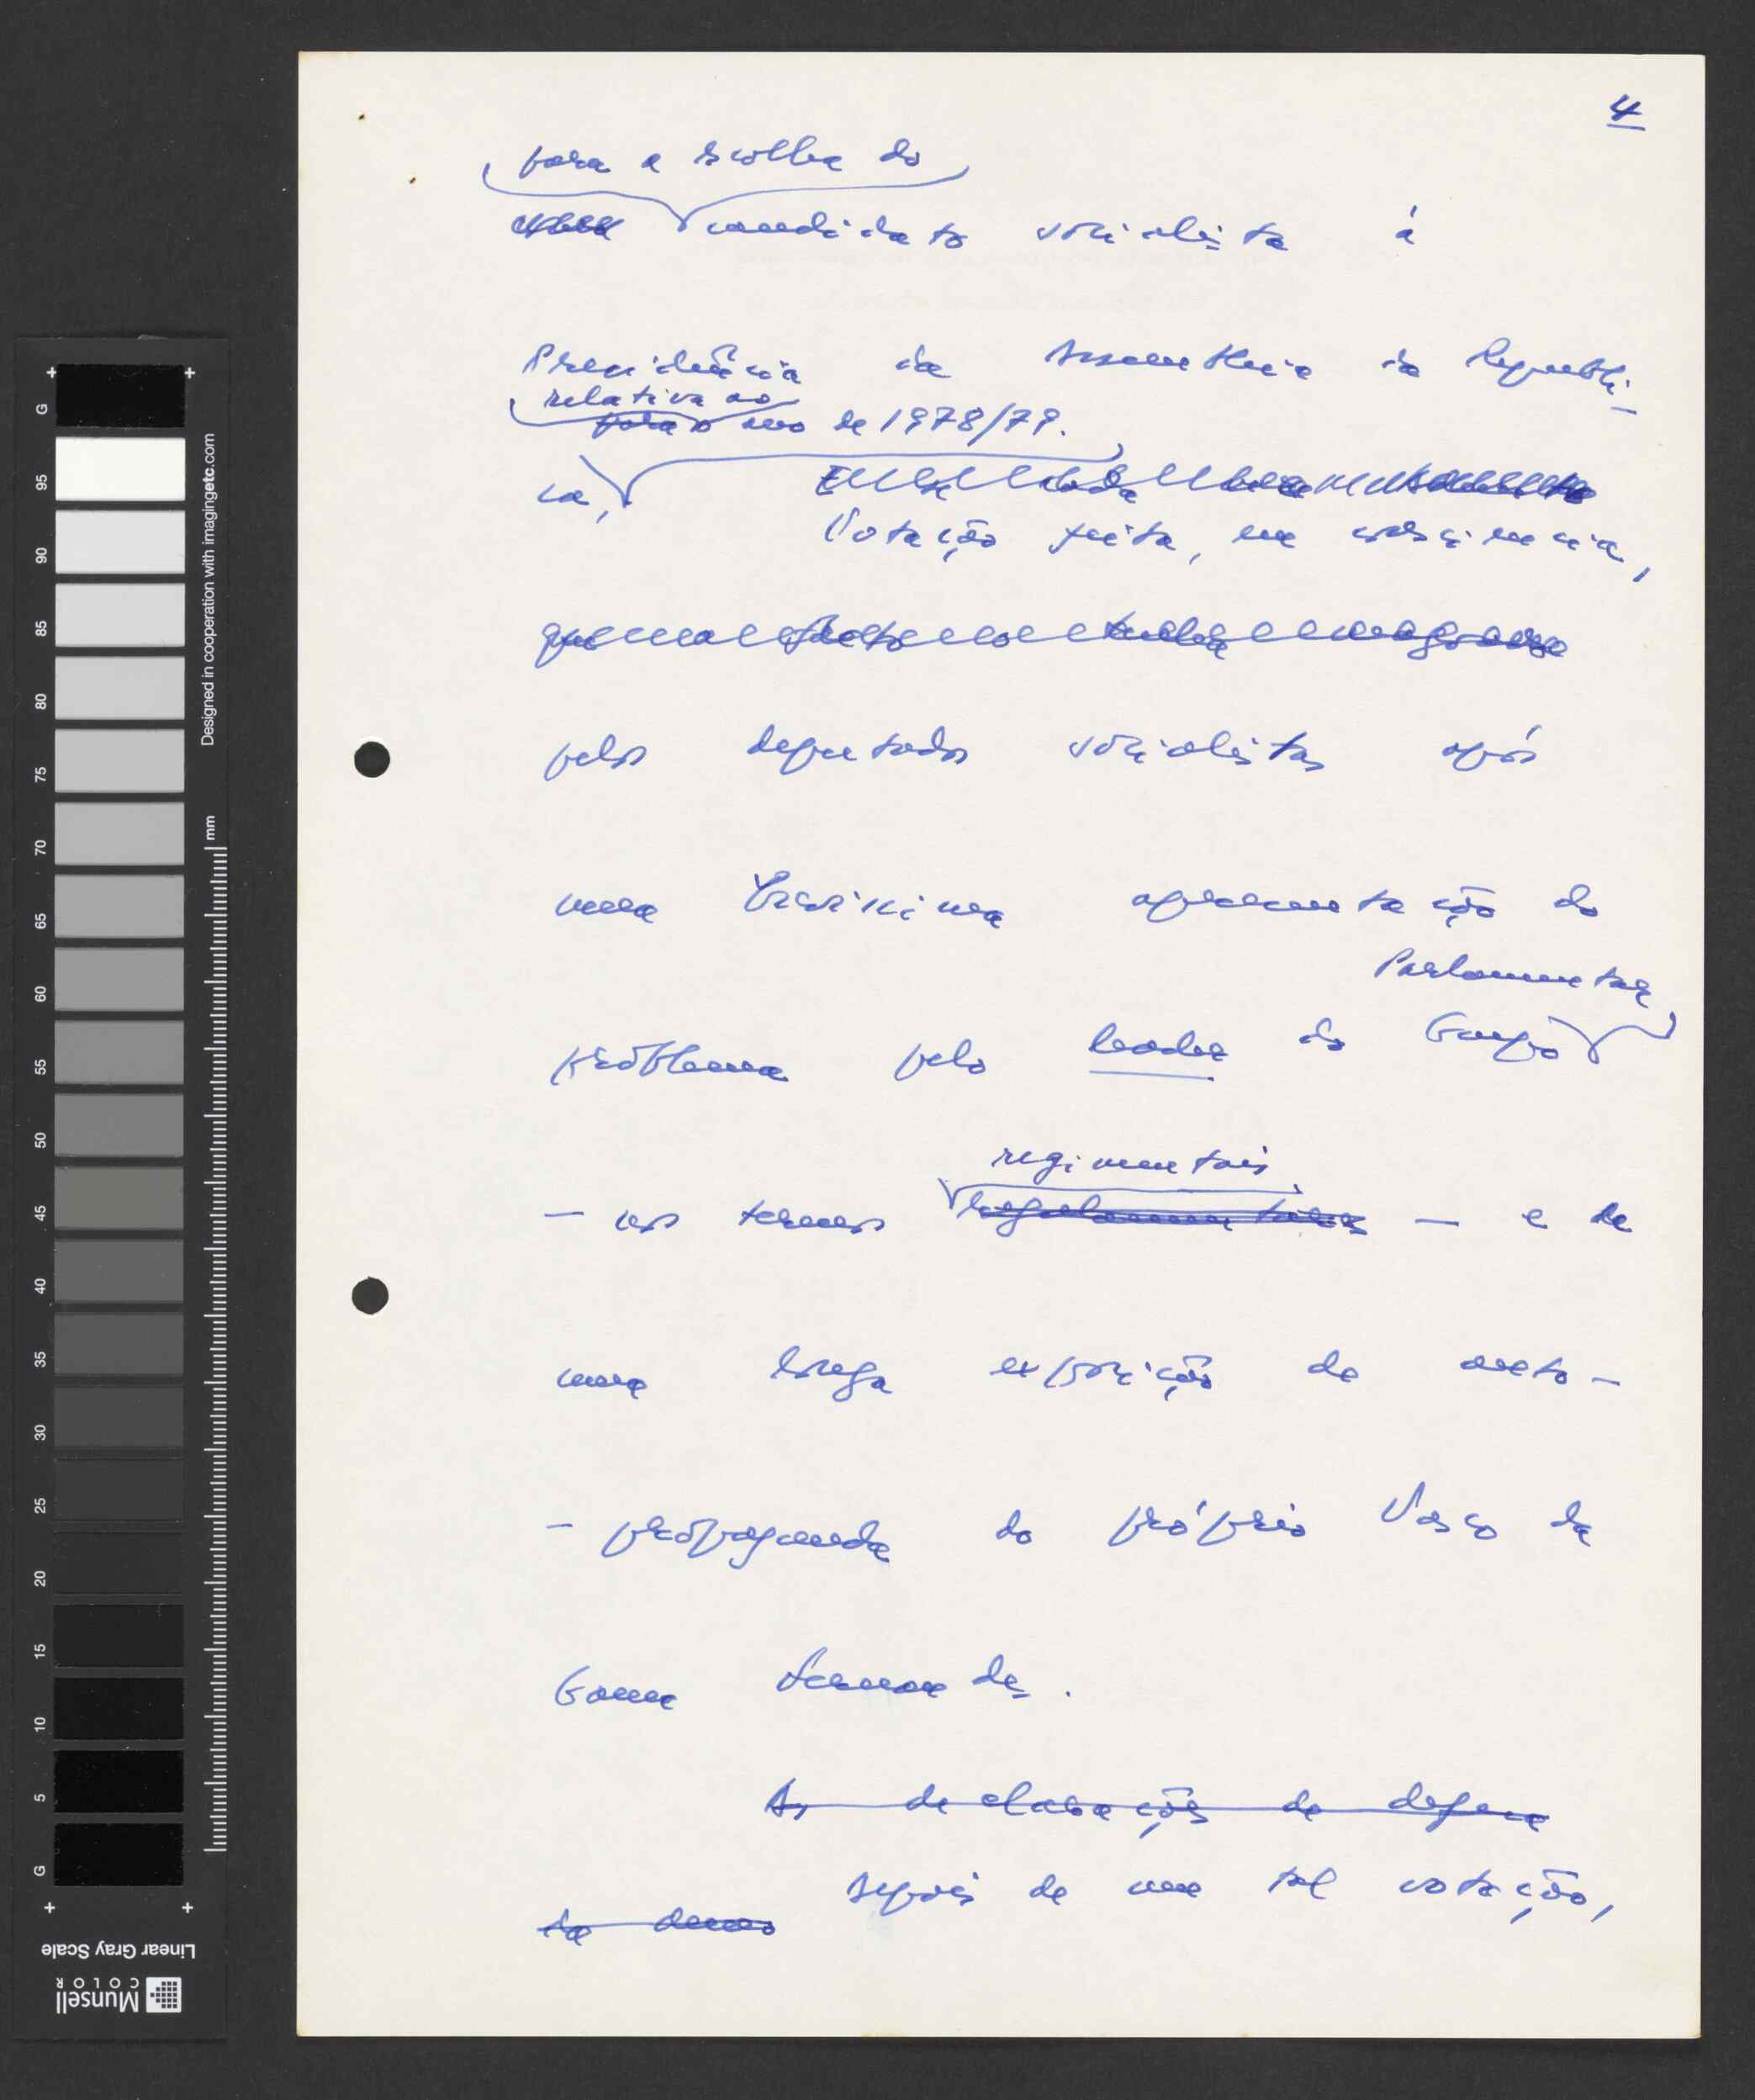 4
para a escolha do
candidato socialista à
Presidência da Assembleia da Repúbli-
relativa ao
para o ano de 1978/79.
ca,
Votação feita, em consciência,
pelos deputados socialistas após
uma brevíssima apresentação do
Parlamentar
problema pelo leader do Grupo
regimentais
— nos termos regulamentares — e de
uma longa exposição de auto-
- propaganda do próprio Vasco da
Gama Fernandes.
As declarações de defesa
depois de uma tal votação,
da
Designed in cooperation with imagingetc.com
mm
G
95
90
85
80
75
70
65
60
55
50
45
40
35
30
25
20
15
10
5
G
Linear Gray Scale
Munsell
COLOR